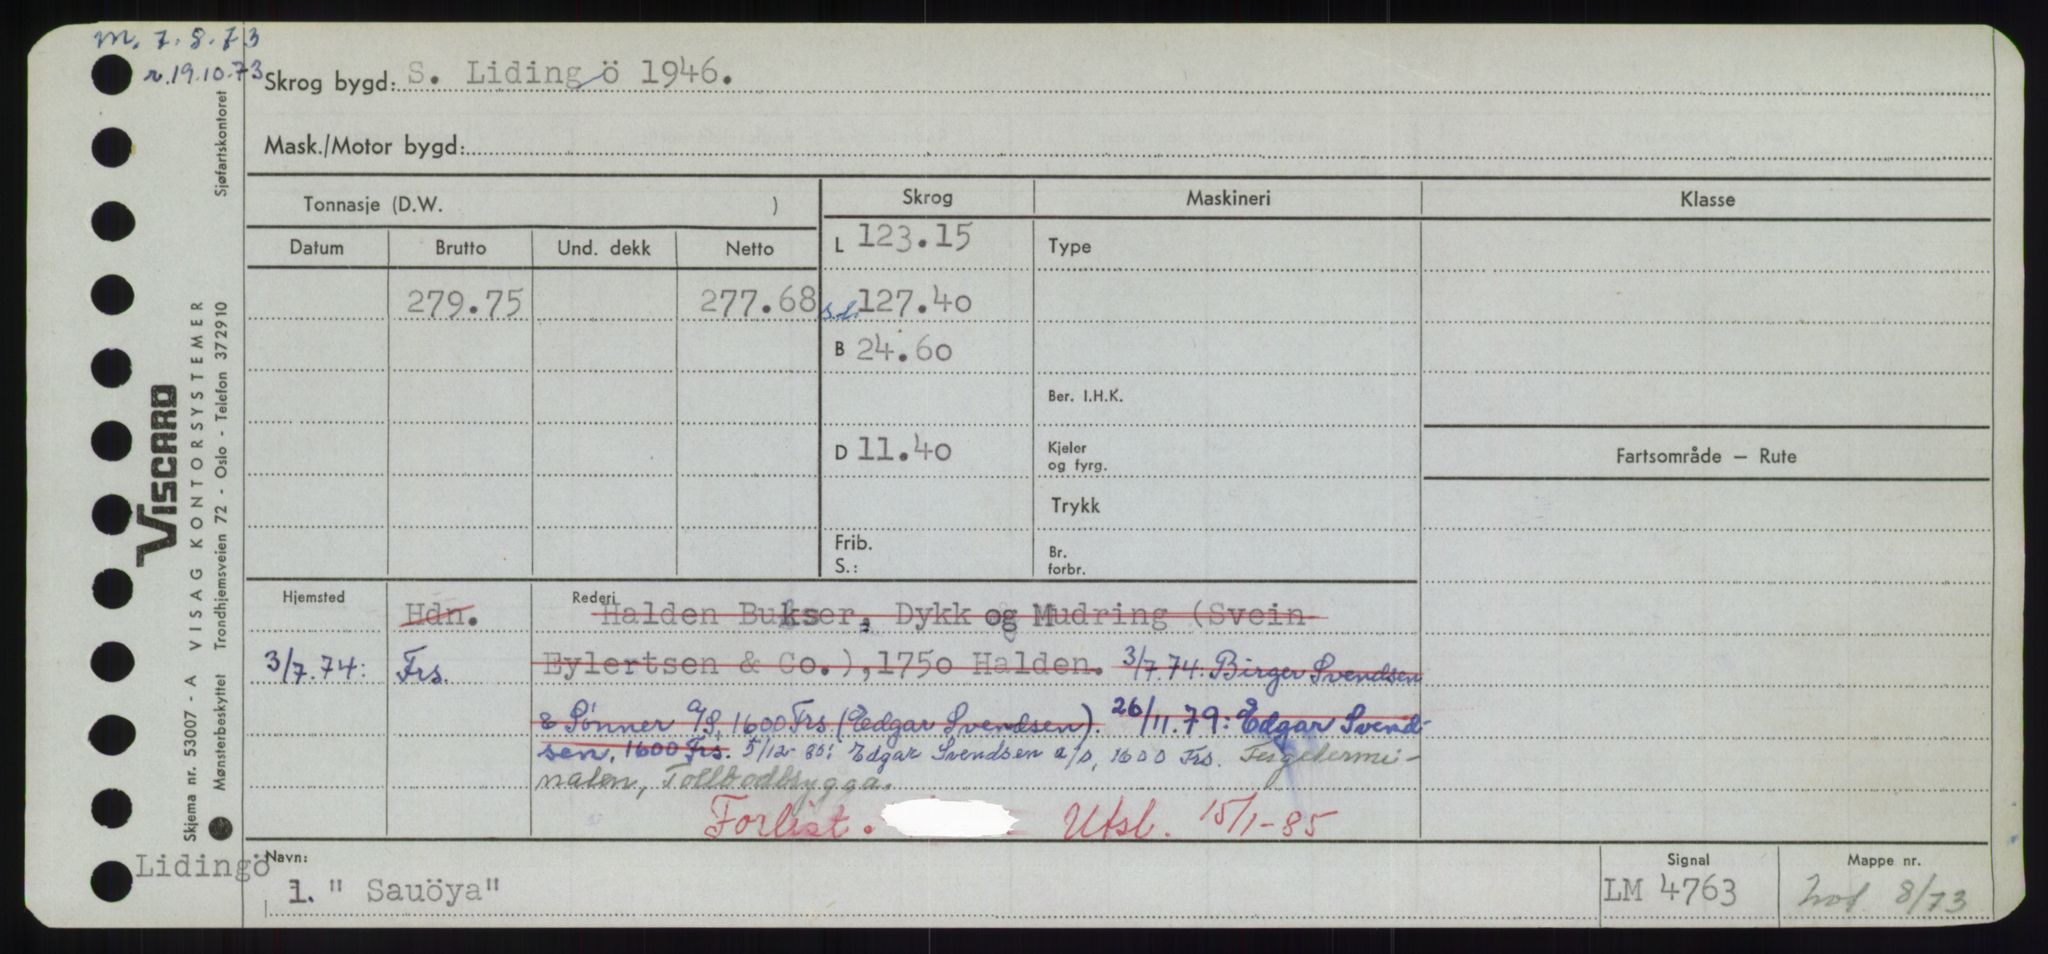 m. 7.8.73
r. 19.10.73
Skrog bygd: S. Lidingö 1946.
Mask./Motor bygd:
Tonnasje (D.W. )
Skrog
Maskineri
Klasse
Datum
Brutto
Und. dekk
Netto
L 123.15
Type
279.75
277.68
s.l. 127.40
B 24.60
Ber. I.H.K.
D 11.40
Kjeler
og fyrg.
Fartsområde — Rute
Trykk
Frib.
S.:
Br.
forbr.
Hjemsted
Hdn.
Rederi
Halden Bukser, Dykk og Mudring (Svein
3/7.74: Frs.
Eylertsen & Co.), 1750 Halden. 3/7.74: Birger Svendsen
& Sønner A/S, 1600 Frs. (Edgar Svendsen). 26/11.79: Edgar Svend-
sen, 1600 Frs. 5/12-80: Edgar Svendsen a/s, 1600 Frs. Fergetermi-
nalen, Tollbodbrygga.
Forlist. Utsl. 15/1-85
Lidingö
Navn:
1. " Sauöya"
Signal
LM 4763
Mappe nr.
8/73
Sjøfartskontoret
VISCARD
VISAG KONTORSYSTEMER
Trondhjemsveien 72 - Oslo - Telefon 372910
Skjema nr. 53007 - A
Mønsterbeskyttet